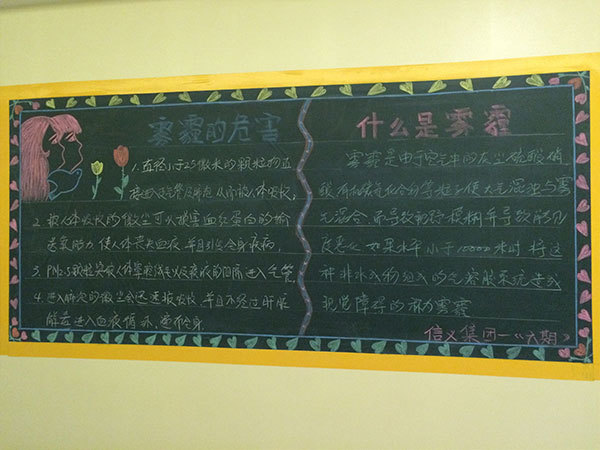 雾霾的危害
1.直径小于2.5微米的颗粒物直
接进入支气管
人体吸收,
2.被人体吸收的微尘可以损害血红蛋白的输
送氧能力 使人体丧失血液 并且引起全身疾病.
3.PM2.5颗粒突破人体鼻腔绒毛以及痰液的阻隔进入气管
4.进入肺泡的微尘会迅速被吸收 并且不经过肝脏
解毒进入血液循环,遍布全身
什么是雾霾
雾霾是由于空气中的灰尘硫酸硝
酸有机碳氢化合物等粒子使大气混浊与雾
气混合 而导致视野模糊并导致能见
度恶化 如果水平小于10000米时 将这
种非水成物组成的气溶胶系统造成
视觉障碍的称为雾霾
信义集团一《六期》